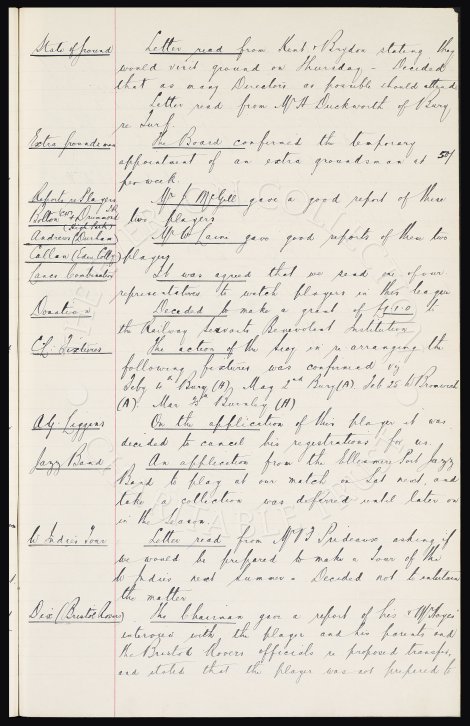 State of ground Letter read from Kent & Brydon stating they
would visit ground on Thursday - Decided
that as many Directors as possible should attend
Letter read from Mr H Duckworth of Bury
re Turf.
Extra groundsman The Board confirmed the temporary
appointment of an extra groundsman at 50/
per week.
Reports re Players Mr J McGill gave a good report of these
Bolton & Drummond two players
Andrews (Durham) Mr W Cairns gave good reports of these two
Callan players
Lancs Combination It was agreed that we send one of our
representatives to watch players in this league
Donation Decided to make a grant of to
the Railway Servants Benevolent Institution
C.L. Fixtures The action of the Secy in re arranging the
following fixtures was confirmed viz
Feby 4th Bury (A) May 2nd Bury (A) Feb 25 W Bromwich
(A) Mar Burnley (H)
A.G. Liggins On the application of this player it was
decided to cancel his registrations for us.
Jazz Band An application from the Ellesmere Port Jazz
Band to play at our match on Sat next, and
take a collection was deferred until later on
in the Season.
W Indies Tour Letter read from Mr Prideaux asking if
we would be prepared to make a Tour of the
W Indies next Summer - Decided not to entertain
the matter
Dix (Bristol Rovers) The Chairman gave a report of his & Mr
interview with the player and his parents and
the Bristol Rovers officials re proposed transfer,
and stated that the player was not prepared to